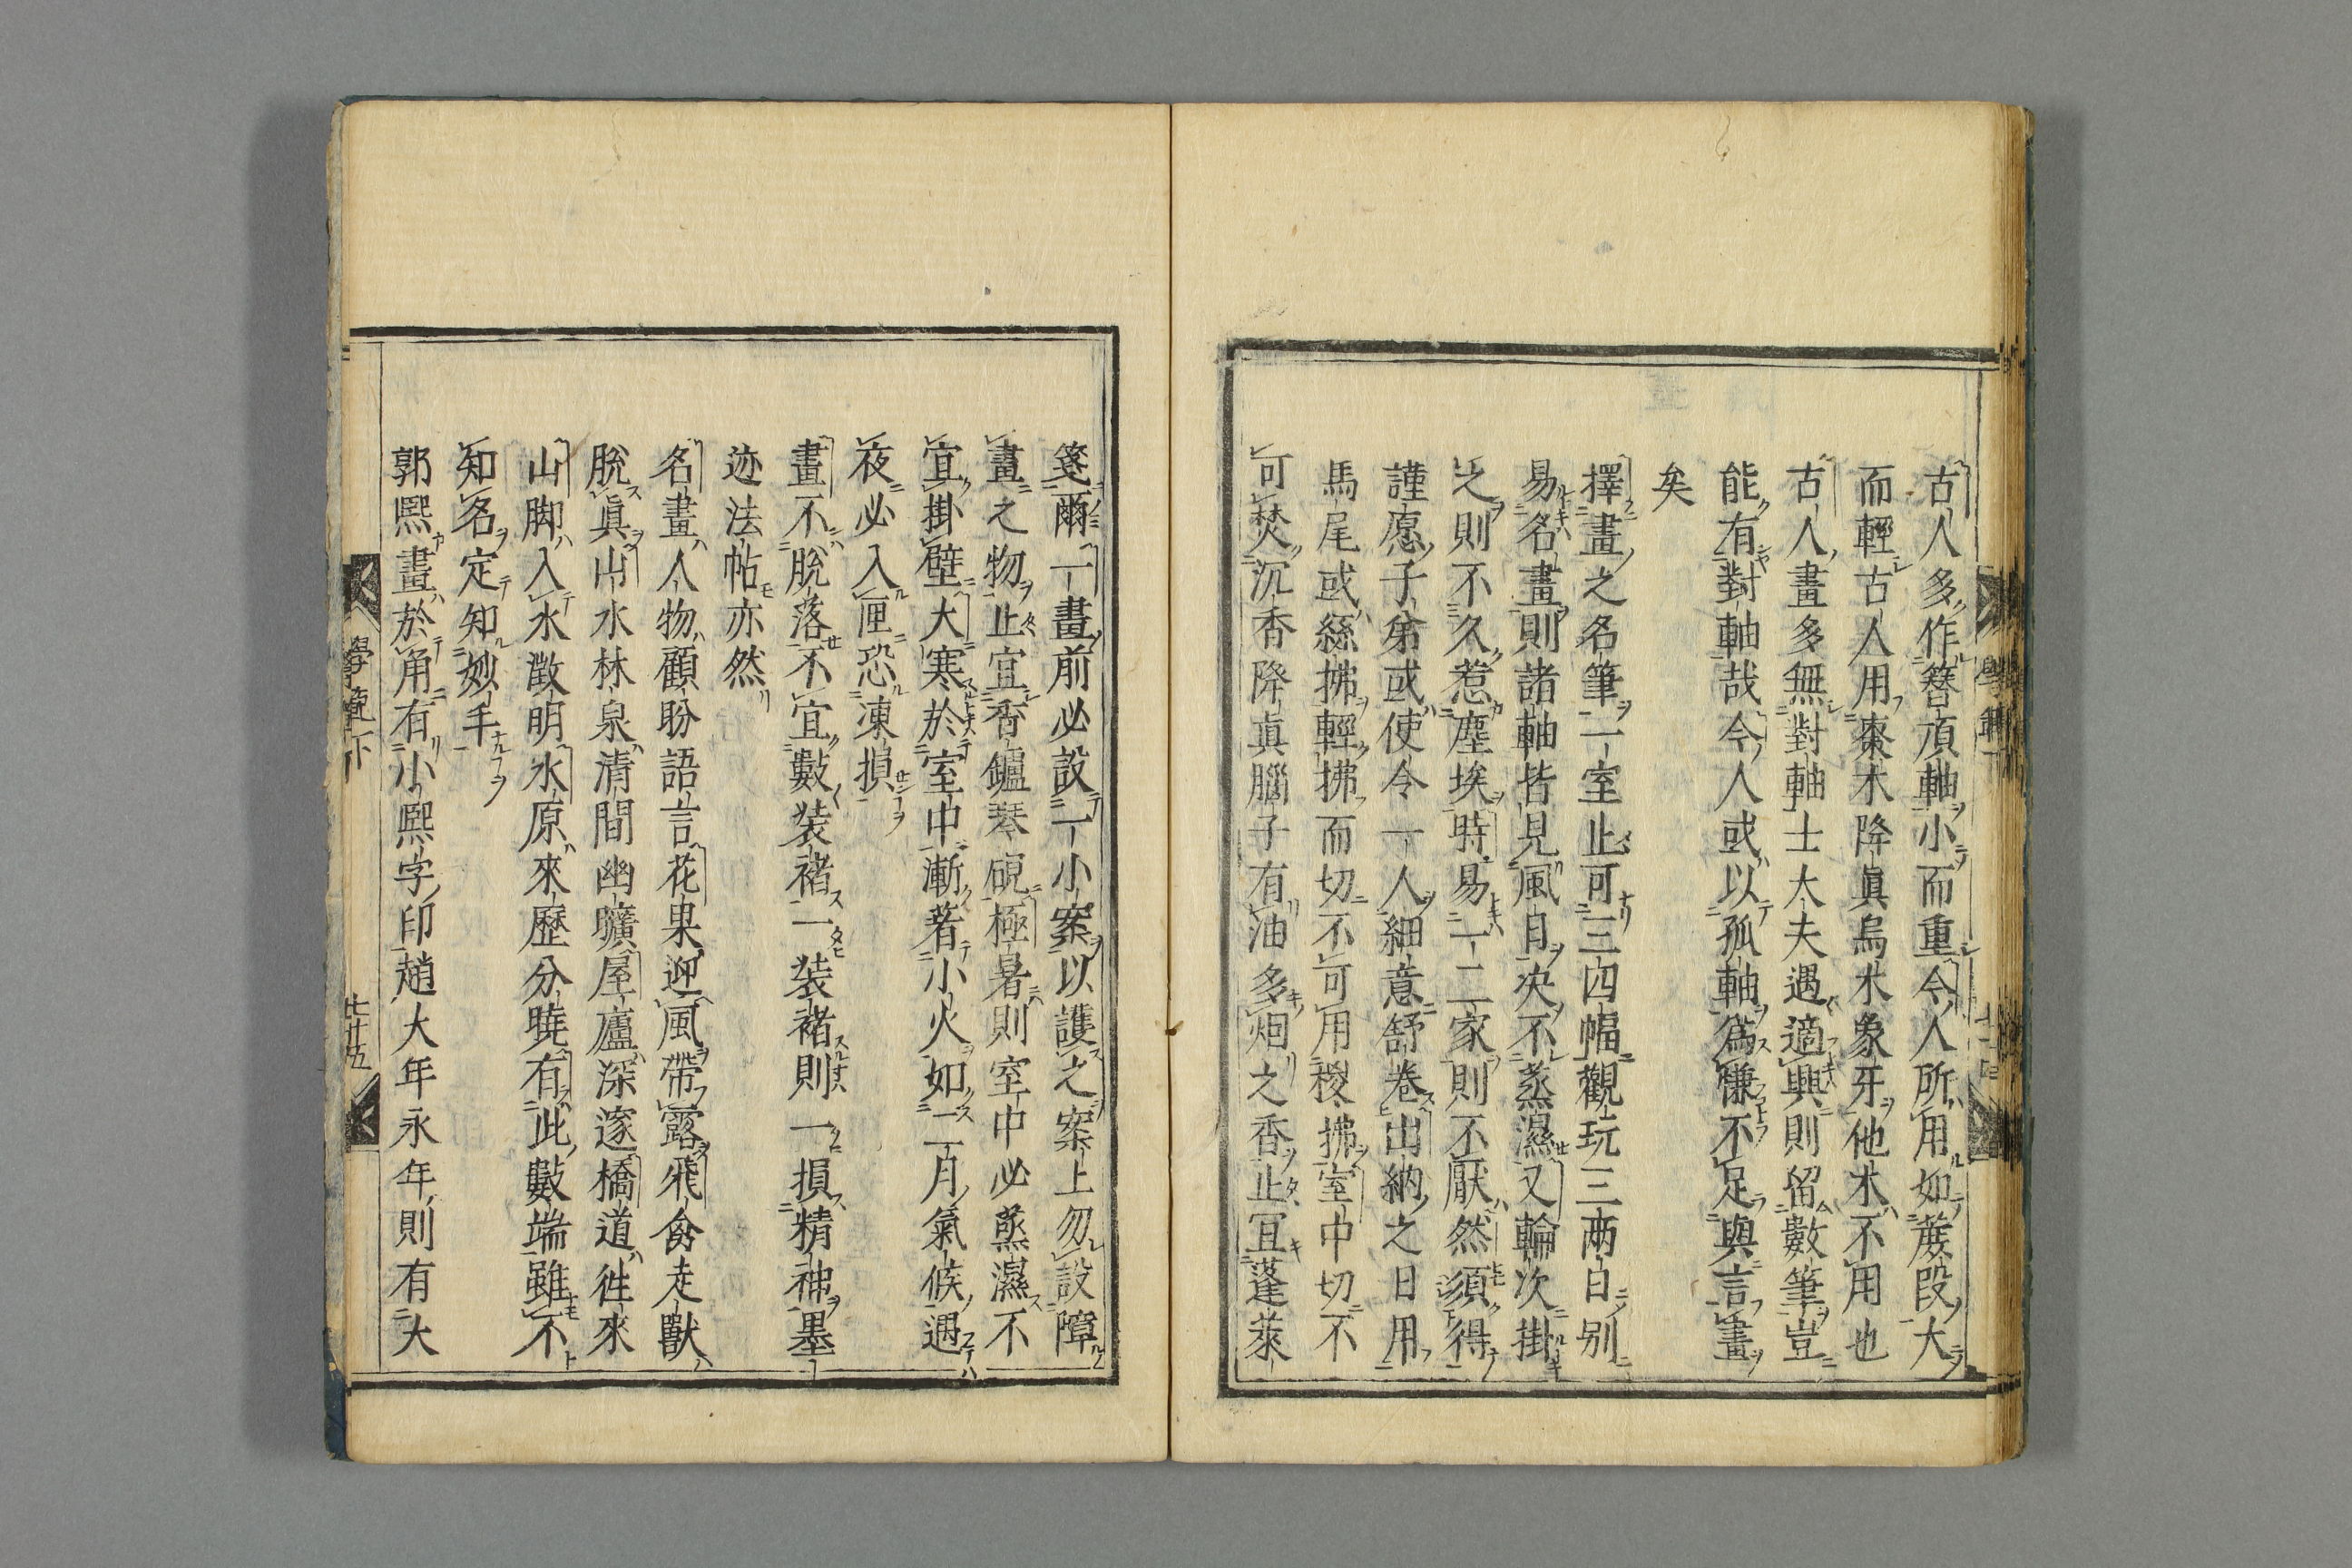 古人多作簪頂軸小而重今人所用如蔗段大
而輕古人用棗木降眞烏木象牙他木不用也
古人畫多無對軸士大夫遇適興則留數筆豈
能有對軸哉今人或以孤軸爲慊不足與言畫
矣
擇畫之名筆一室止可三四幅觀玩三兩日別
易名畫則諸軸皆見風日决不蒸濕又輪次掛
之則不久惹塵埃時易一二家則不厭然須得
謹愿子弟或使令一人細意舒卷出納之日用
馬尾或絲拂輕拂而切不可用椶拂室中切不
可焚沉香降眞腦子有油多烟之香止宜蓬萊
箋爾一畫前必設一小案以護之案上勿設障
畫之物止宜香鑪琴硯極暑則室中必蒸濕不
宜掛壁大寒於室中漸著小火如二月氣候遇
夜必入匣恐凍損
畫不脫落不宜數装褚一装褚則一損精神墨
迹法帖亦然
名畫人物顧盼語言花果迎風帶露飛禽走獸
脫眞山水林泉清間幽曠屋廬深邃橋道徃來
山脚入水澂明水原來歷分曉有此數端雖不
知名定知妙手
郭熙畫於角有小熙字印趙大年永年則有大
學範下
七廿五